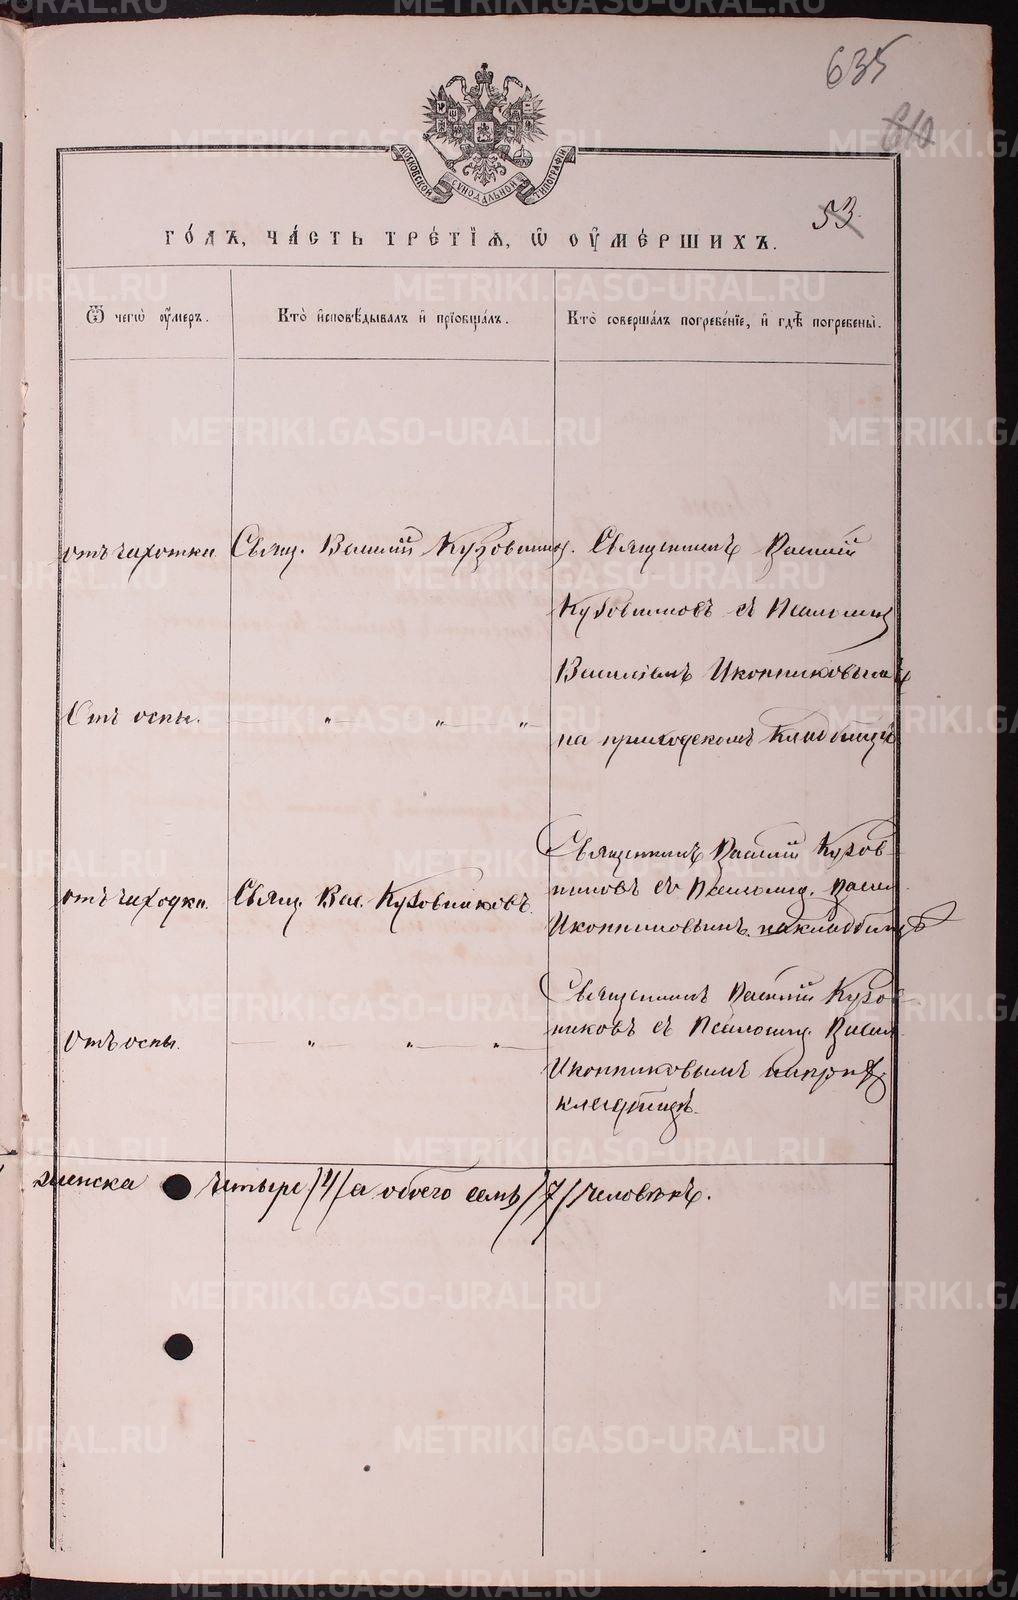 635
610
53
МОСКОВСКОЙ СѴНОДАЛЬНОЙ ТИПОГРАФІИ
ГО́ДЪ, ЧА́СТЬ ТРЕ́ТІѦ, Ѡ҆ ОУ҆МЕ́РШИХЪ.
Ѿ чегѡ̀ оу҆́меръ.
Кто̀ и҆сповѣ́дывалъ и҆ прїѡбща́лъ.
Кто̀ соверша́лъ погребе́нїе, и҆ гдѣ̀ погребены̀.
отъ чахотки
Свящ. Василій Кузовников.
Священникъ Василій
Кузовниковъ съ Псаломщ
Василіемъ Иконниковымъ
Отъ оспы.
" " "
на приходскомъ кладбищѣ
Священникъ Василій Кузов-
отъ чаходки.
Свящ. Вас. Кузовниковъ.
никовъ съ Псаломщ. Васил
Иконниковымъ на кладбищѣ
Священникъ Василій Кузов
никовъ съ Псаломщ. Васил
Отъ оспы.
" " "
Иконниковымъ
кладбищѣ.
женска четыре /4/ а обоего семь /7/ человѣкъ.
METRIKI.GASO-URAL.RU